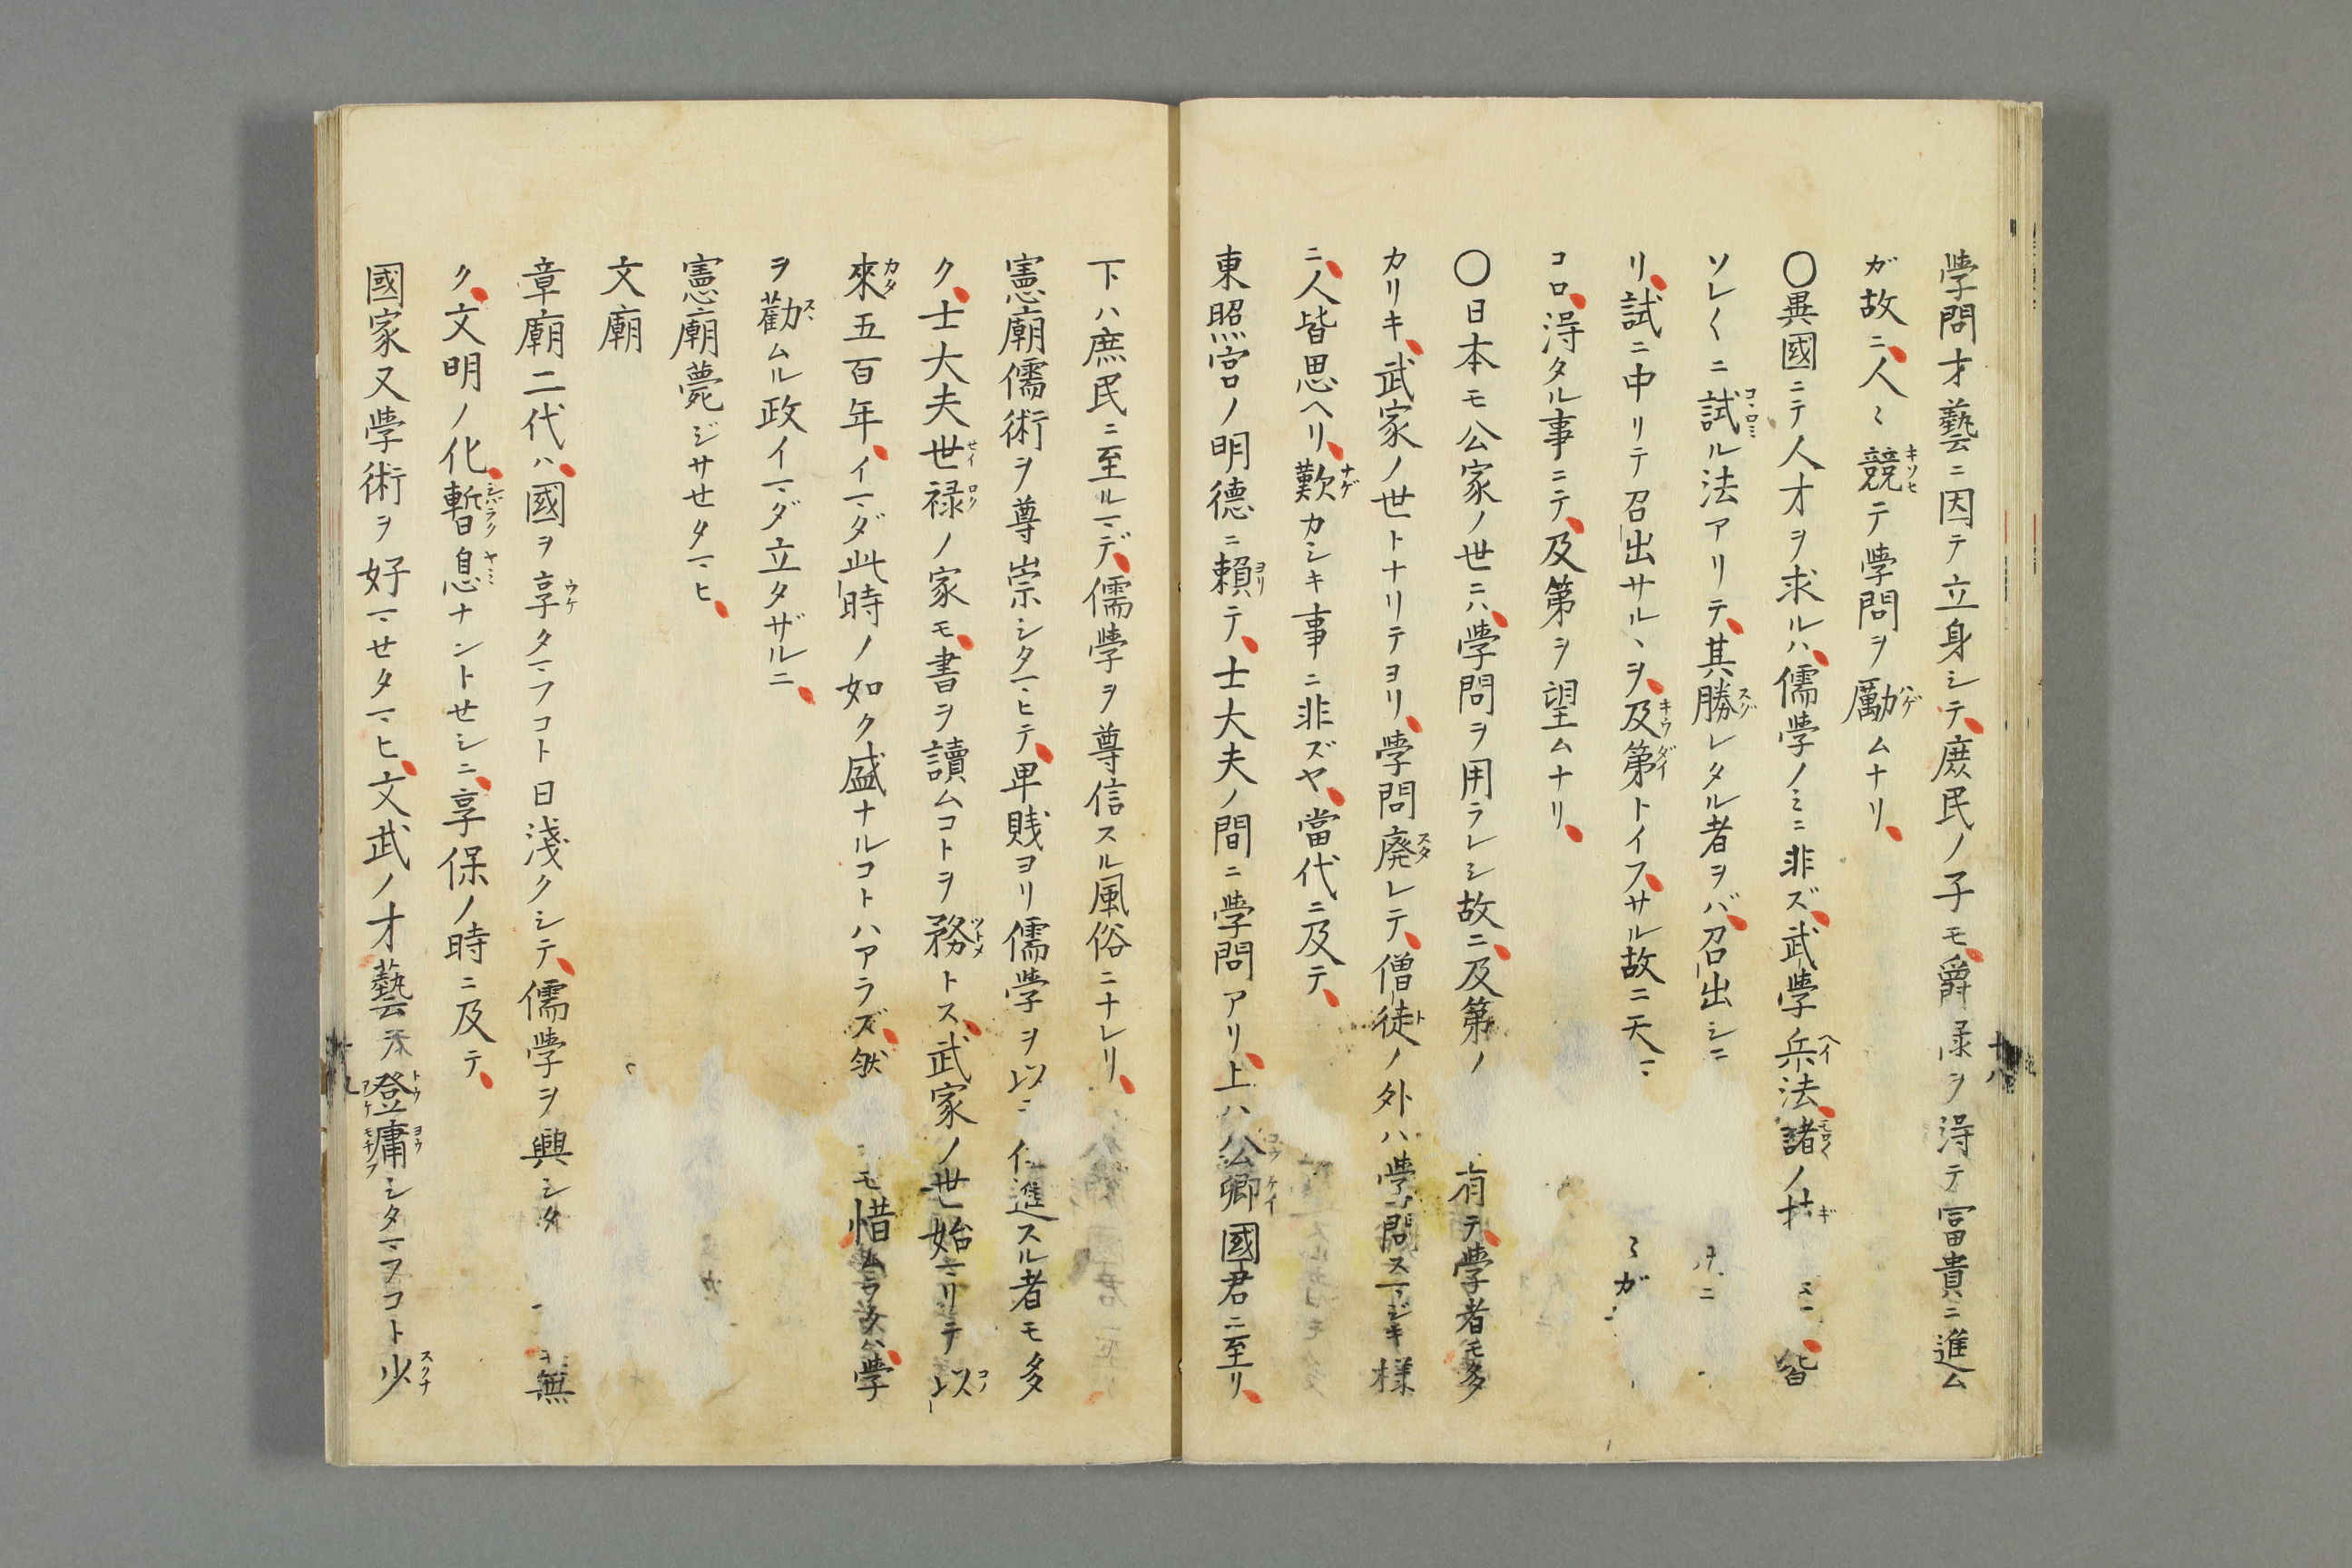 學問才藝ニ因テ立身シテ、庶民ノ子モ、爵祿ヲ得テ冨貴ニ進ム
ガ故ニ、人〻競テ學問ヲ勵ムナリ、
〇異國ニテ人才ヲ求ルハ、儒學ノミニ非ズ、武學兵法、諸ノ技 皆
ソレ〱ニ試ル法アリテ、其勝レタル者ヲバ、召出シニ
リ、試ニ中リテ召出サルヽヲ、及第トイフ、サル故ニ天 ガ
コロ、得タル事ニテ、及第ヲ望ムナリ、
〇日本モ公家ノ世ニハ、學問ヲ用ラレシ故ニ、及第ノ 有テ、學者モ多
カリキ、武家ノ世トナリテヨリ、學問廃レテ、僧徒ノ外ハ學問スマジキ様
ニ、人皆思ヘリ、歎カシキ事ニ非ズヤ、當代ニ及テ、
東照宮ノ明德ニ賴テ、士大夫ノ間ニ學問アリ、上ハ公卿國君ニ至リ、
下ハ庶民ニ至ルマデ、儒學ヲ尊信スル風俗ニナレリ、
憲廟儒術ヲ尊崇シタマヒテ、卑賎ヨリ儒學ヲ以 仕進スル者モ多
ク、士大夫世禄ノ家モ、書ヲ讀ムコトヲ務トス、武家ノ世始マリテ以
來五百年、イマダ此時ノ如ク盛ナルコトハアラズ、然 モ惜ムラクハ、學
ヲ勸ムル政イマダ立タザルニ、
憲廟薨ジサセタマヒ、
文廟
章廟二代ハ、國ヲ享タマフコト日淺クシテ、儒學ヲ興シタ 無
ク、文明ノ化、暫息ナントセシニ、享保ノ時ニ及テ、
國家又學術ヲ好マセタマヒ、文武ノ才藝ヲ登庸シタマフコト少